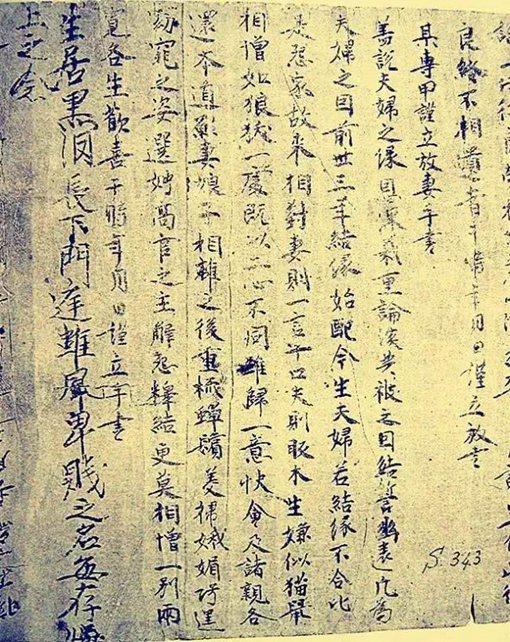 良終不相遺者于時年月日謹立放書
其專甲謹立放妻手書
蓋說夫婦之緣恩深義重論談共被之因結誓幽遠凡為
夫婦之因前世三年結緣始配今生夫婦若結緣不合比
是怨家故來相對妻則一言十口夫則木生嫌似猫鼠
相憎如狼一處既以二心不同難歸一意快會及諸親各
還本道願妻娘子相離之後重梳蟬鬢美掃娥媚巧逞
窈窕之姿選娉高官之主解怨釋結更莫相憎一別兩
寬各生歡喜于時年月日謹立手書
生居黑長下門庭雖屈卑賤之名每存
上之念
S.343